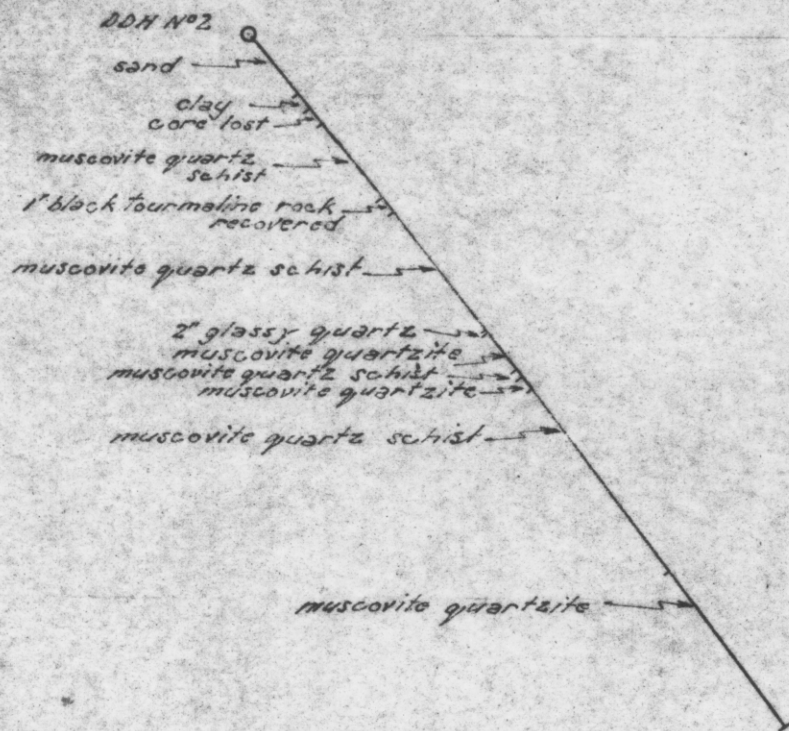 DDH Nº2
sand
clay
core lost
muscovite quartz
schist
1" black tourmaline rock
recovered
muscovite quartz schist
2" glassy quartz
muscovite quartzite
muscovite quartz schist
muscovite quartzite
muscovite quartz schist
muscovite quartzite